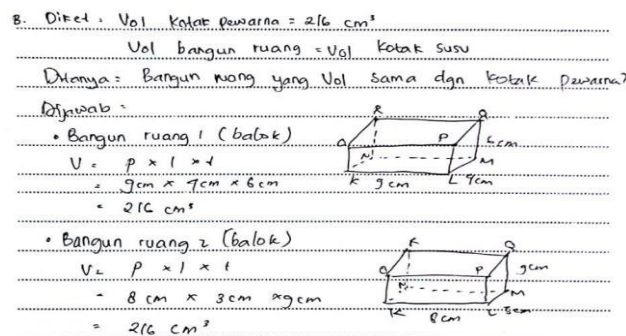 B. Diket : Vol kotak pewarna = 216 cm³
Vol bangun ruang = Vol kotak susu
Ditanya = Bangun ruang yang Vol sama dgn kotak pewarna?
Dijawab =
• Bangun ruang 1 (balok)
V = p x l x t
= 9cm x 4cm x 6cm
= 216 cm³
R Q
O P
N M
K 9cm L 4cm
6cm
• Bangun ruang 2 (balok)
V = p x l x t
= 8 cm x 3cm x 9cm
= 216 cm³
R Q
O P 9cm
N M
K 8cm L 3cm